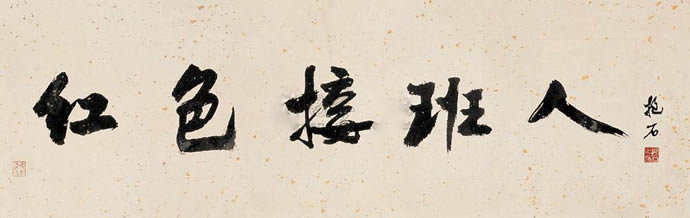 红色接班人
抱石